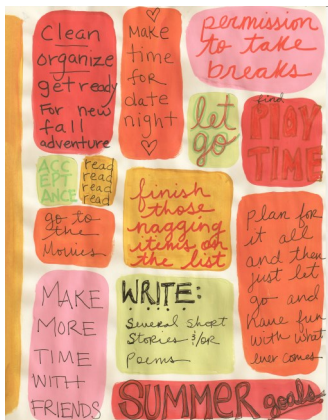 Clean
organize
get ready
For new
fall
adventure
Make
time
for
date
night
permission
to take
breaks
let
go
find
PLAY
TIME
ACC
EPT
ANCE
read
read
read
read
go to
the
Movies
finish
those
nagging
items on
the list
Plan for
it all
and then
just let
go and
have fun
with what
ever comes.
MAKE
MORE
TIME
WITH
FRIENDS
WRITE:
Several short
Stories &/OR
Poems
SUMMER goals.